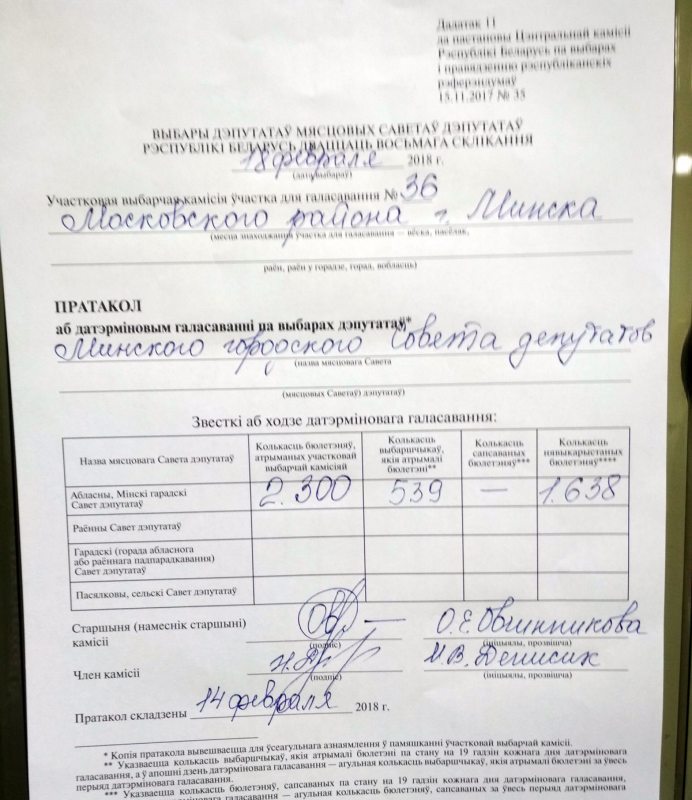 Дадатак 11
да пастановы Цэнтральнай камісіі
Рэспублікі Беларусь па выбарах
і правядзенню рэспубліканскіх
рэферэндумаў
15.11.2017 № 35
ВЫБАРЫ ДЭПУТАТАЎ МЯСЦОВЫХ САВЕТАЎ ДЭПУТАТАЎ
РЭСПУБЛІКІ БЕЛАРУСЬ ДВАЦЦАЦЬ ВОСЬМАГА СКЛІКАННЯ
18 февраля 2018 г.
(дата выбараў)
Участковая выбарчая камісія ўчастка для галасавання № 36
Московского района г. Минска
(месца знаходжання ўчастка для галасавання – вёска, пасёлак,
раён, раён у горадзе, горад, вобласць)
ПРАТАКОЛ
аб датэрміновым галасаванні па выбарах дэпутатаў*
Минского городского Совета депутатов
(назва мясцовага Савета
(мясцовых Саветаў) дэпутатаў)
Звесткі аб ходзе датэрміновага галасавання:
Назва мясцовага Савета дэпутатаў
Колькасць бюлетэняў, атрыманых участковай выбарчай камісіяй
Колькасць выбаршчыкаў, якія атрымалі бюлетэні**
Колькасць сапсаваных бюлетэняў***
Колькасць нявыкарыстаных бюлетэняў****
Абласны, Мінскі гарадскі Савет дэпутатаў 2.300 539 — 1.638
Раённы Савет дэпутатаў
Гарадскі (горада абласнога або раённага падпарадкавання) Савет дэпутатаў
Пасялковы, сельскі Савет дэпутатаў
Старшыня (намеснік старшыні)
камісіі О.Е.Овчинникова
(подпіс) (ініцыялы, прозвішча)
Член камісіі
(подпіс) (ініцыялы, прозвішча)
Пратакол складзены 14 февраля 2018 г.
* Копія пратакола вывешваецца для ўсеагульнага азнаямлення ў памяшканні ўчастковай выбарчай камісіі.
** Указваецца колькасць выбаршчыкаў, якія атрымалі бюлетэні па стану на 19 гадзін кожнага дня датэрміновага
галасавання, а ў апошні дзень датэрміновага галасавання – агульная колькасць выбаршчыкаў, якія атрымалі бюлетэні за ўвесь
перыяд датэрміновага галасавання.
*** Указваецца колькасць бюлетэняў, сапсаваных па стану на 19 гадзін кожнага дня датэрміновага галасавання,
галасавання – агульная колькасць бюлетэняў, сапсаваных за ўвесь перыяд датэрміновага